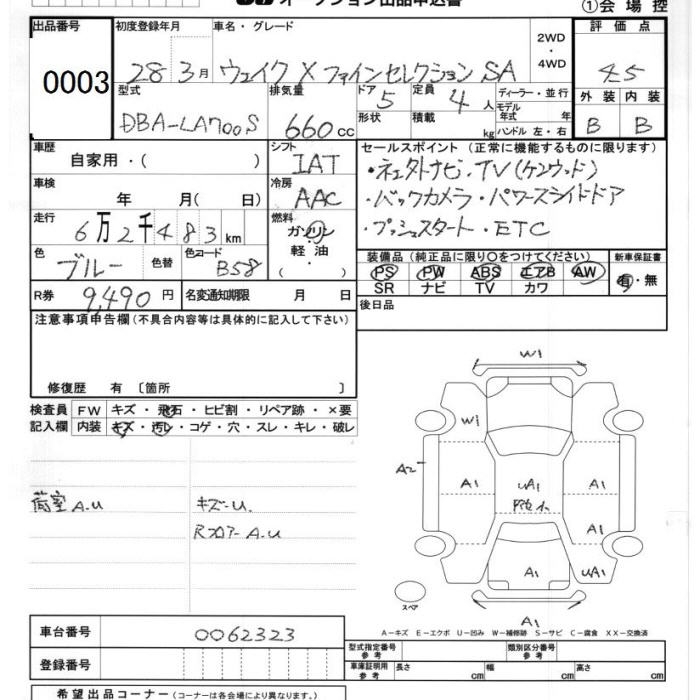 オークション出品申込書 ①会場控
出品番号 初度登録年月 車名・グレード 2WD・4WD 評価点
0003 28 3月 ウェイク X ファインセレクション SA 4.5
型式 排気量 ドア 定員 ディーラー・並行 外装 内装
DBA-LA700S 660cc 5 4人 モデル年式 年 B B
形状 積載 kg ハンドル 左・右
車歴 シフト セールスポイント(正常に機能するものに限ります)
自家用・( ) IAT ・ネュタトナビ・TV(ケンウッド)
車検 年 月( 日) 冷房 AAC ・バックカメラ・パワースライドドア
走行 6万2千483km 燃料 ガソリン・軽油・( ) ・プッシュスタート・ETC
色 ブルー 色替 色コード B58 装備品(純正品に限り○をつけてください) 新車保証書
PS PW ABS エアB AW 有・無
SR ナビ TV カワ
R券 9,490円 名変通知期限 月 日 後日品
注意事項申告欄(不具合内容等は具体的に記入して下さい)
修復歴 有〔箇所 〕
検査員 FW キズ・飛石・ヒビ割・リペア跡・×要
記入欄 内装 キズ・汚レ・コゲ・穴・スレ・キレ・破レ
荷室A.U キズ-U.
Rフロアー A.U
W1
W1
A2 A1 UA1 A1
A1
A1 UA1
スペア A1
A-キズ E-エクボ U-凹み W-補修跡 S-サビ C-腐食 XX-交換済
車台番号 0062323
登録番号
型式指定番号 参考 類別区分番号 参考
車庫証明用 参考 長さ cm 幅 cm 高さ cm
希望出品コーナー(コーナーは各会場により異なります。)